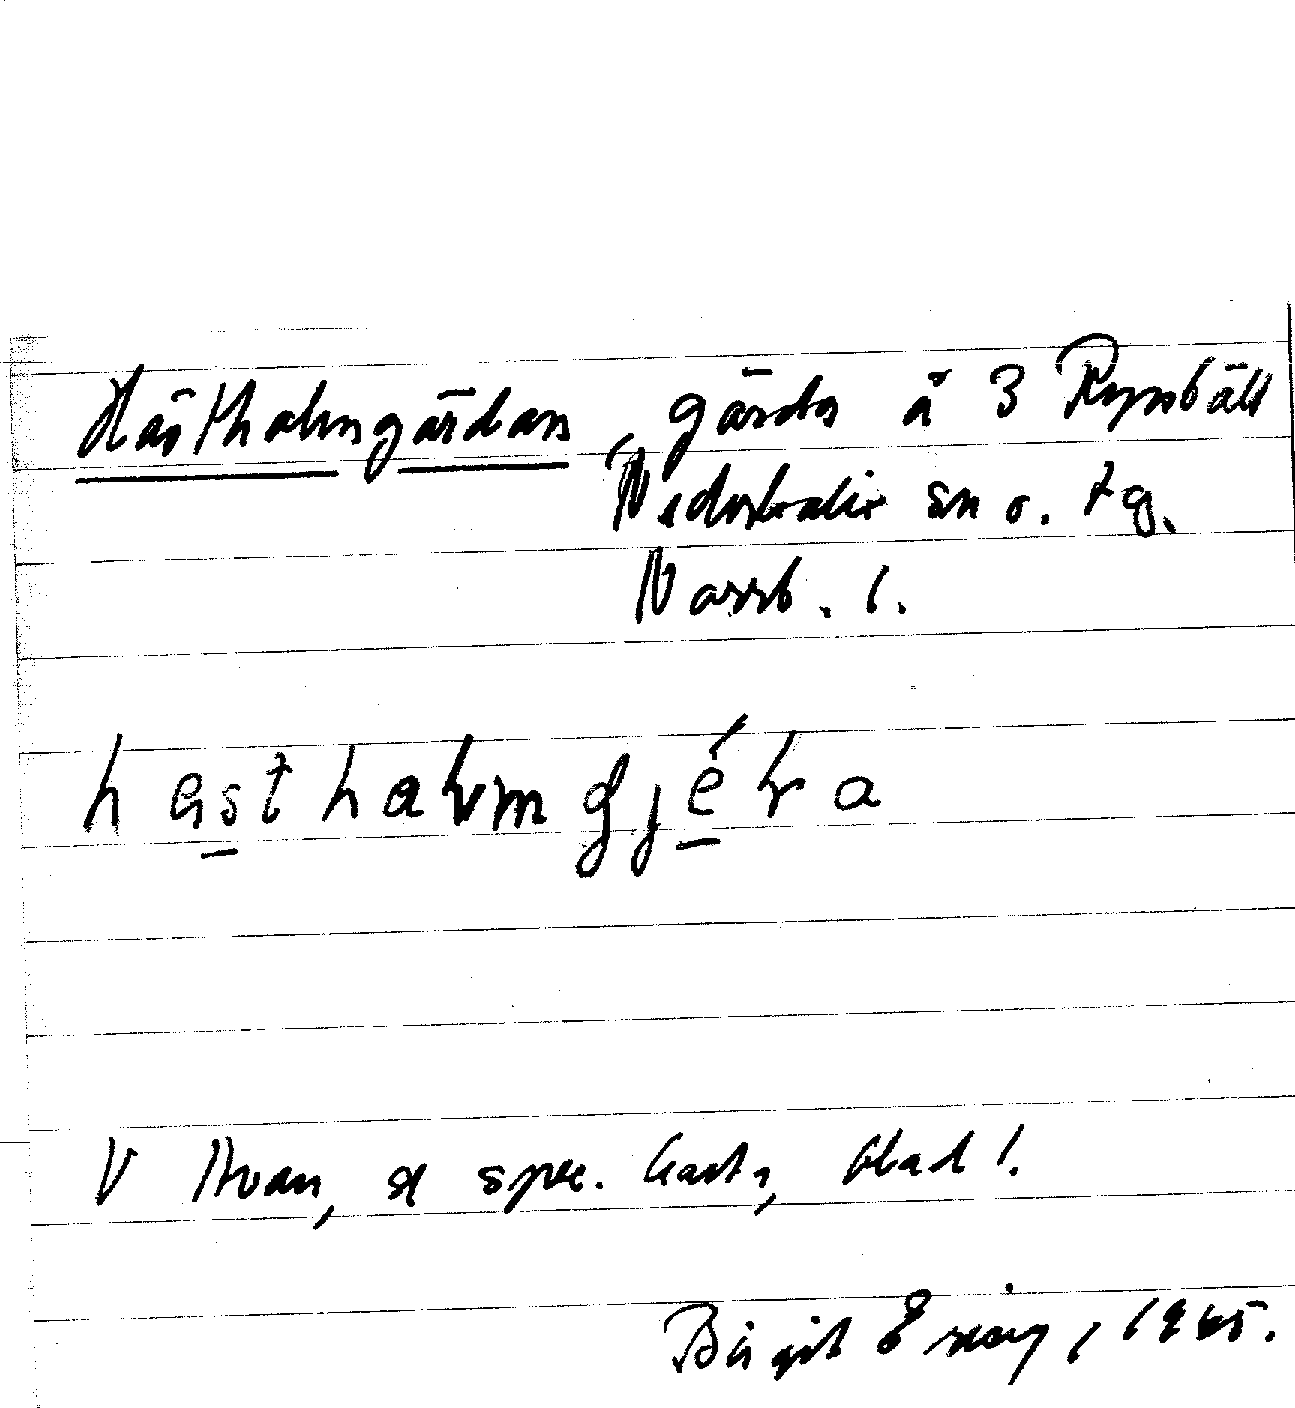 Hästholmgärdan, gärda å 3 Rynbäck
Nederkalix sn o. tg.
Norrb. l.
hasthaɫmgjéɽa
V Åvan, se spec. karta, blad 1.
Birgit Ering, 1945.